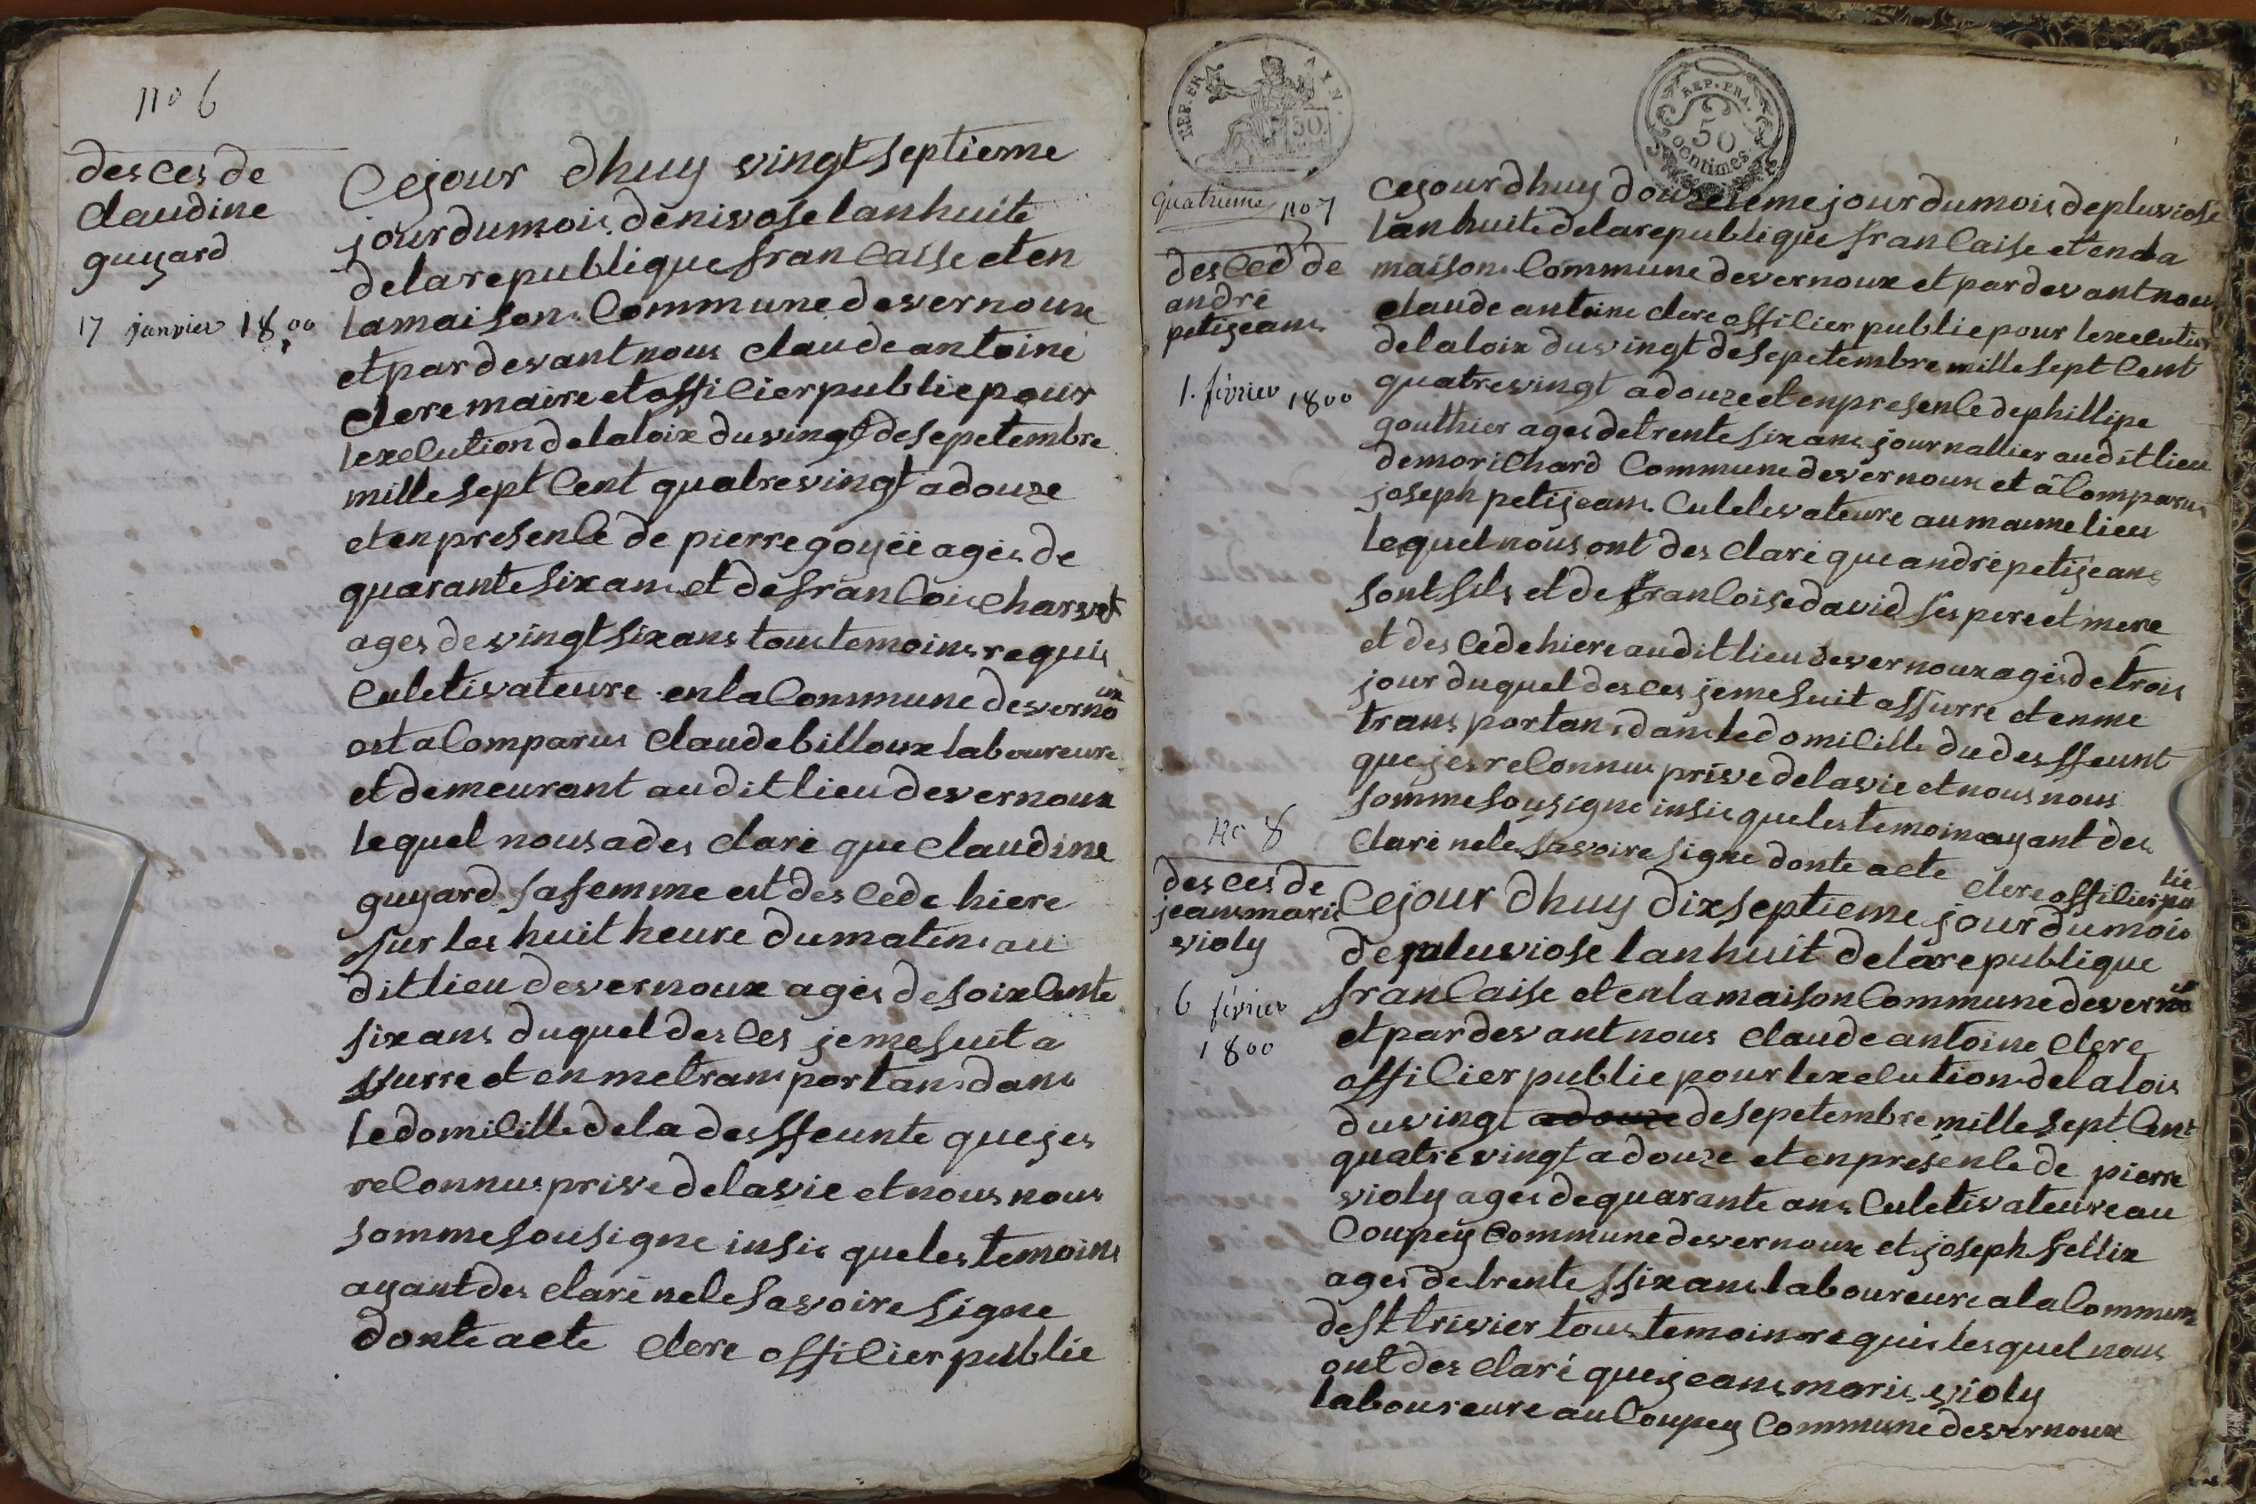 no 6
desces de
claudine
guyard
17 janvier 1800
Cejour dhuy vingt septieme
jour dumois denivose lanhuite
delarepublique francaise eten
lamaison Commune desvernoux
etpardevantnous claude antoine
clere maire etofficier publie pour
lexecution delaloix duvingt desepetembre
mille sept Cent quatrevingt adouze
etenpresence de pierre goyëë ages de
quarante six ans et de francois charvet
ages devingt six ans tous temoins requis
Culetivateure enla Commune desvernoux
est a Comparus claude billoux laboureure
et demeurant audit lieu desvernoux
lequel nous a des claré que claudine
guyard sa femme est des cede hiere
sur les huit heure dumatin au
dit lieu desvernoux ages de soixcente
six ans duquel desces jemesuit a
ssurre et en metransportans dans
ledomicille dela desffeunte que jes
reconnus prive delavie et nous nous
somme sousigne insis que les temoins
ayant des claré nele savoire signe
donte acte clere officier publie
REP. FRA
50
REP. FRA.
50
centimes
quatrieme no 7
desced de
andré
petijeans
1. février 1800
cejourdhuy douzeieme jour dumois depluviose
lan huite delarepublique francaise et enla
maison Commune desvernoux et pardevant nous
claude antoine clere officier publie pour lexecution
delaloix duvingt desepetembre mille sept Cent
quatrevingt adouze et enpresence de phillipe
gouthier ages detrente six ans journallier audit lieu
demorichard Commune desvernoux et â Comparus
joseph petijeans Culetivateure au maume lieu
lequel nous ont des claré que andré petijeans
sont fils et de francoise david ses pere et mere
et des cede hiere audit lieu desvernoux ages detrois
jour duquel desces jemesuit assurre et enme
transportans dans ledomicille du desffeunt
que jes reconnus prive delavie et nous nous
somme sousigne insis que les temoins ayant des
claré nele savoire signe donte acte
clere officier publie
no 8
desces de
jeans marie
violy
6 février
1800
Cejour dhuy dix septieme jour dumois
de pluviose lan huit delarepublique
francaise et enlamaison Commune desvernoux
et pardevant nous claude antoine clere
officier publie pour lexecution delalois
duvingt adouze desepetembre mille sept Cent
quatrevingt adouze et enpresence de pierre
violy ages dequarante ans Culetivateure au
Coupey Commune desvernoux et joseph fellix
ages detrente ssix ans laboureure ala Commune
de st trivier tous temoins requis lesquel nous
ont des claré que jeans marie violy
laboureure au Coupey Commune desvernoux